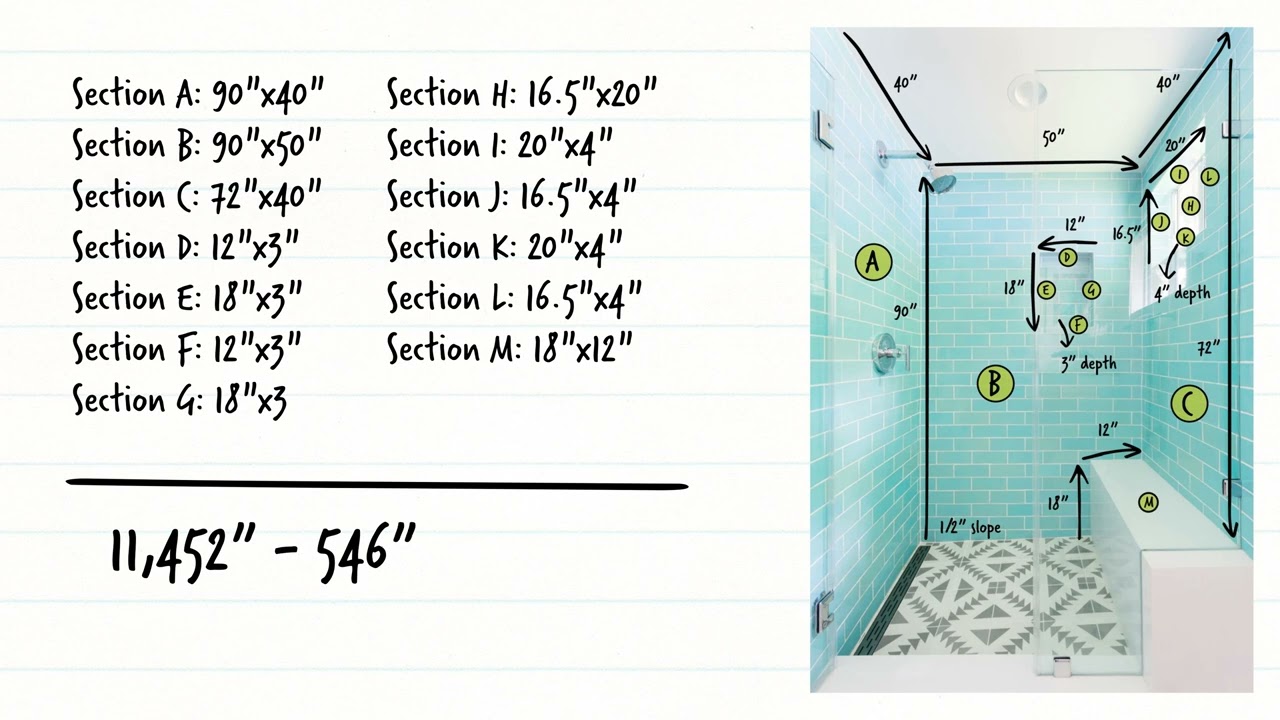 Section A: 90"x40"
Section B: 90"x50"
Section C: 72"x40"
Section D: 12"x3"
Section E: 18"x3"
Section F: 12"x3"
Section G: 18"x3
Section H: 16.5"x20"
Section I: 20"x4"
Section J: 16.5"x4"
Section K: 20"x4"
Section L: 16.5"x4"
Section M: 18"x12"
11,452" - 546"
40"
40"
50"
20"
I
L
H
J
K
16.5"
4" depth
12"
D
18"
E
G
F
3" depth
A
90"
B
72"
C
12"
18"
M
1/2" slope